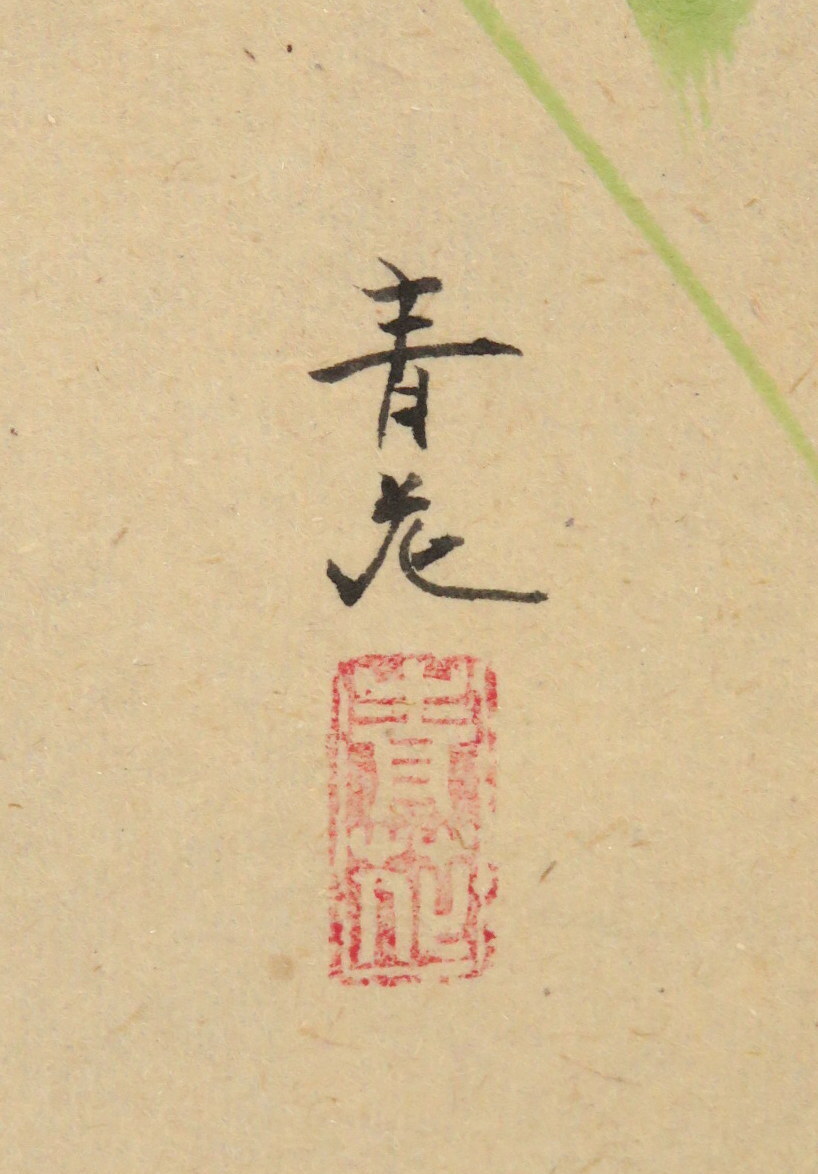 青花
青花